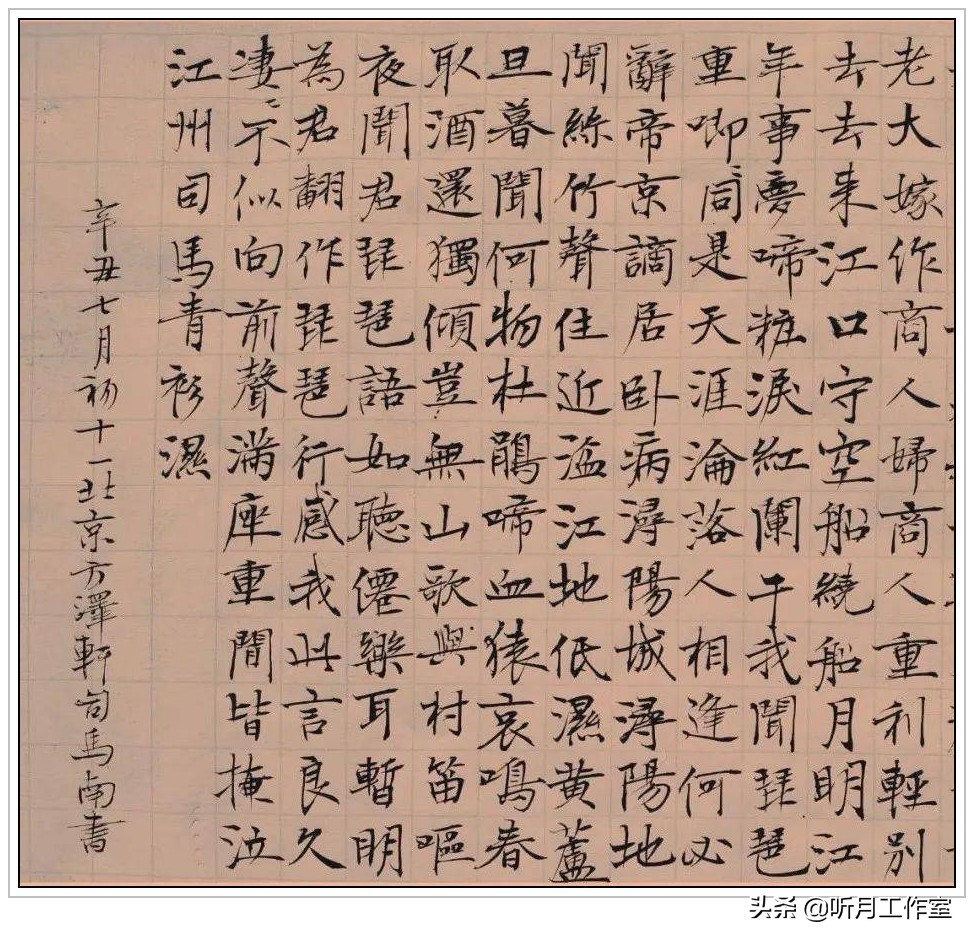 老大嫁作商人婦商人重利輕別
去去来江口守空船繞船月明江
年事夢啼粧淚紅闌干我聞琵琶
重唧〻同是天涯淪落人相逢何必
辭帝京謫居卧病潯陽城潯陽地
聞絲竹聲住近湓江地低濕黄蘆
旦暮聞何物杜鵑啼血猿哀鳴春
取酒還獨傾豈無山歌與村笛嘔
夜聞君琵琶語如聽僊樂耳暫明
為君翻作琵琶行感我此言良久
淒〻不似向前聲滿座重聞皆掩泣
江州司馬青衫濕
辛丑七月初十一北京方澤軒司馬南書
头条 @听月工作室